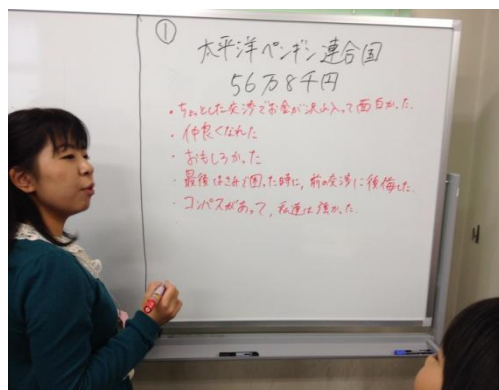 ①
太平洋ペンギン連合国
56万8千円
・ちょっとした交渉でお金が沢山入って面白かった.
・仲良くなれた
・おもしろかった
・最後はさみで困った時に,前の交渉に後悔した.
・コンパスがあって,私達は強かった.